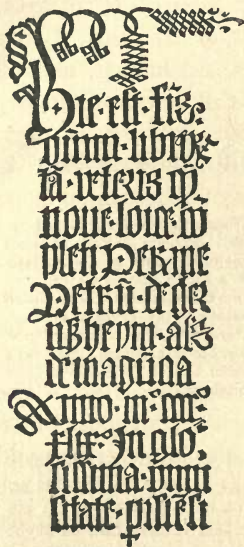 Hic · est · fis
omniū · libror·
tā · veteris q̄
noue · loice · cō
pleti Per me
Petrū · de ger
nsheym · als
de magūcia
Anno · m° · cccc°
xlix° · In glo·
sissima · vniu
sitate · pisiēsi